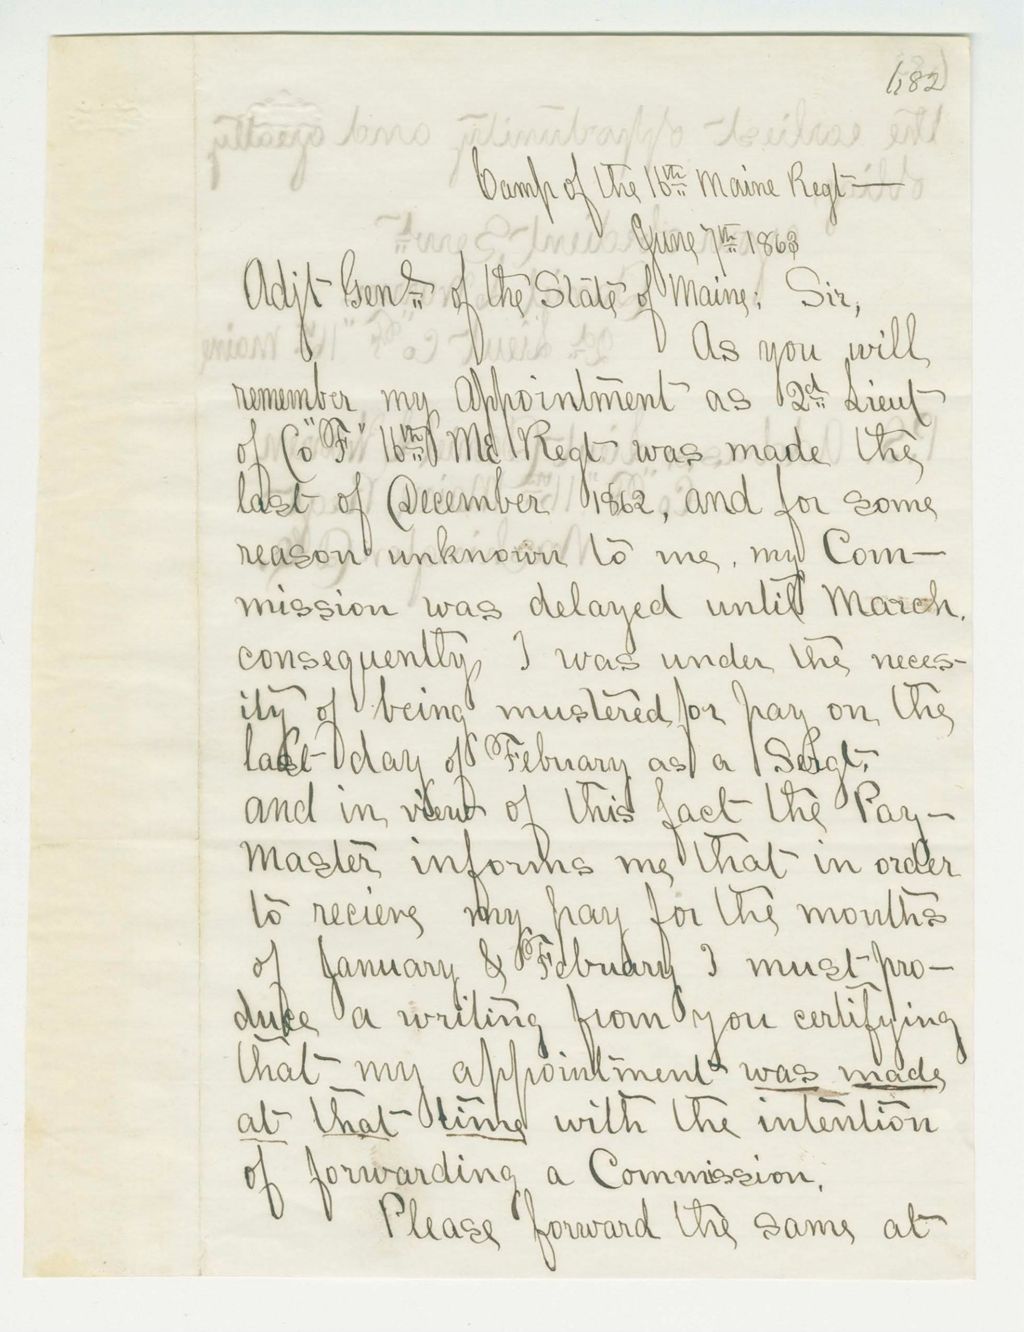 182
Camp of the 16th Maine Regt—
June 7th 1863
Adjt Genl of the State of Maine; Sir,
As you will
remember my Appointment as 2d Lieut
of Co "F" 16th Me Regt was made the
last of December 1862, and for some
reason unknown to me, my Com—
mission was delayed until March.
consequently, I was under the neces-
ity of being mustered for pay on the
last day of February as a Sergt.
and in view of this fact the Pay—
Master informs me that in order
to recieve my pay for the months
of January & February I must pro—
duce a writing from you certifying
that my appointment was made
at that time with the intention
of forwarding a Commission.
Please forward the same at